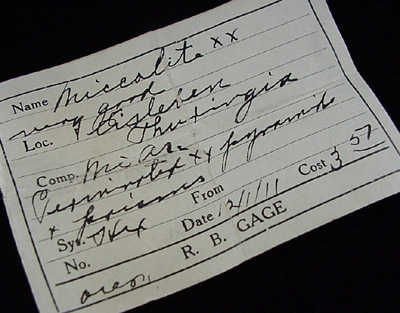 Name Niccolite xx
very good
Loc. Eisleben
Thuringia
Comp. Ni As.
Terminated xx pyramids
+ prisms
Sys. Hex From Cost 3 57
No. Date 12/1/11
R. B. GAGE